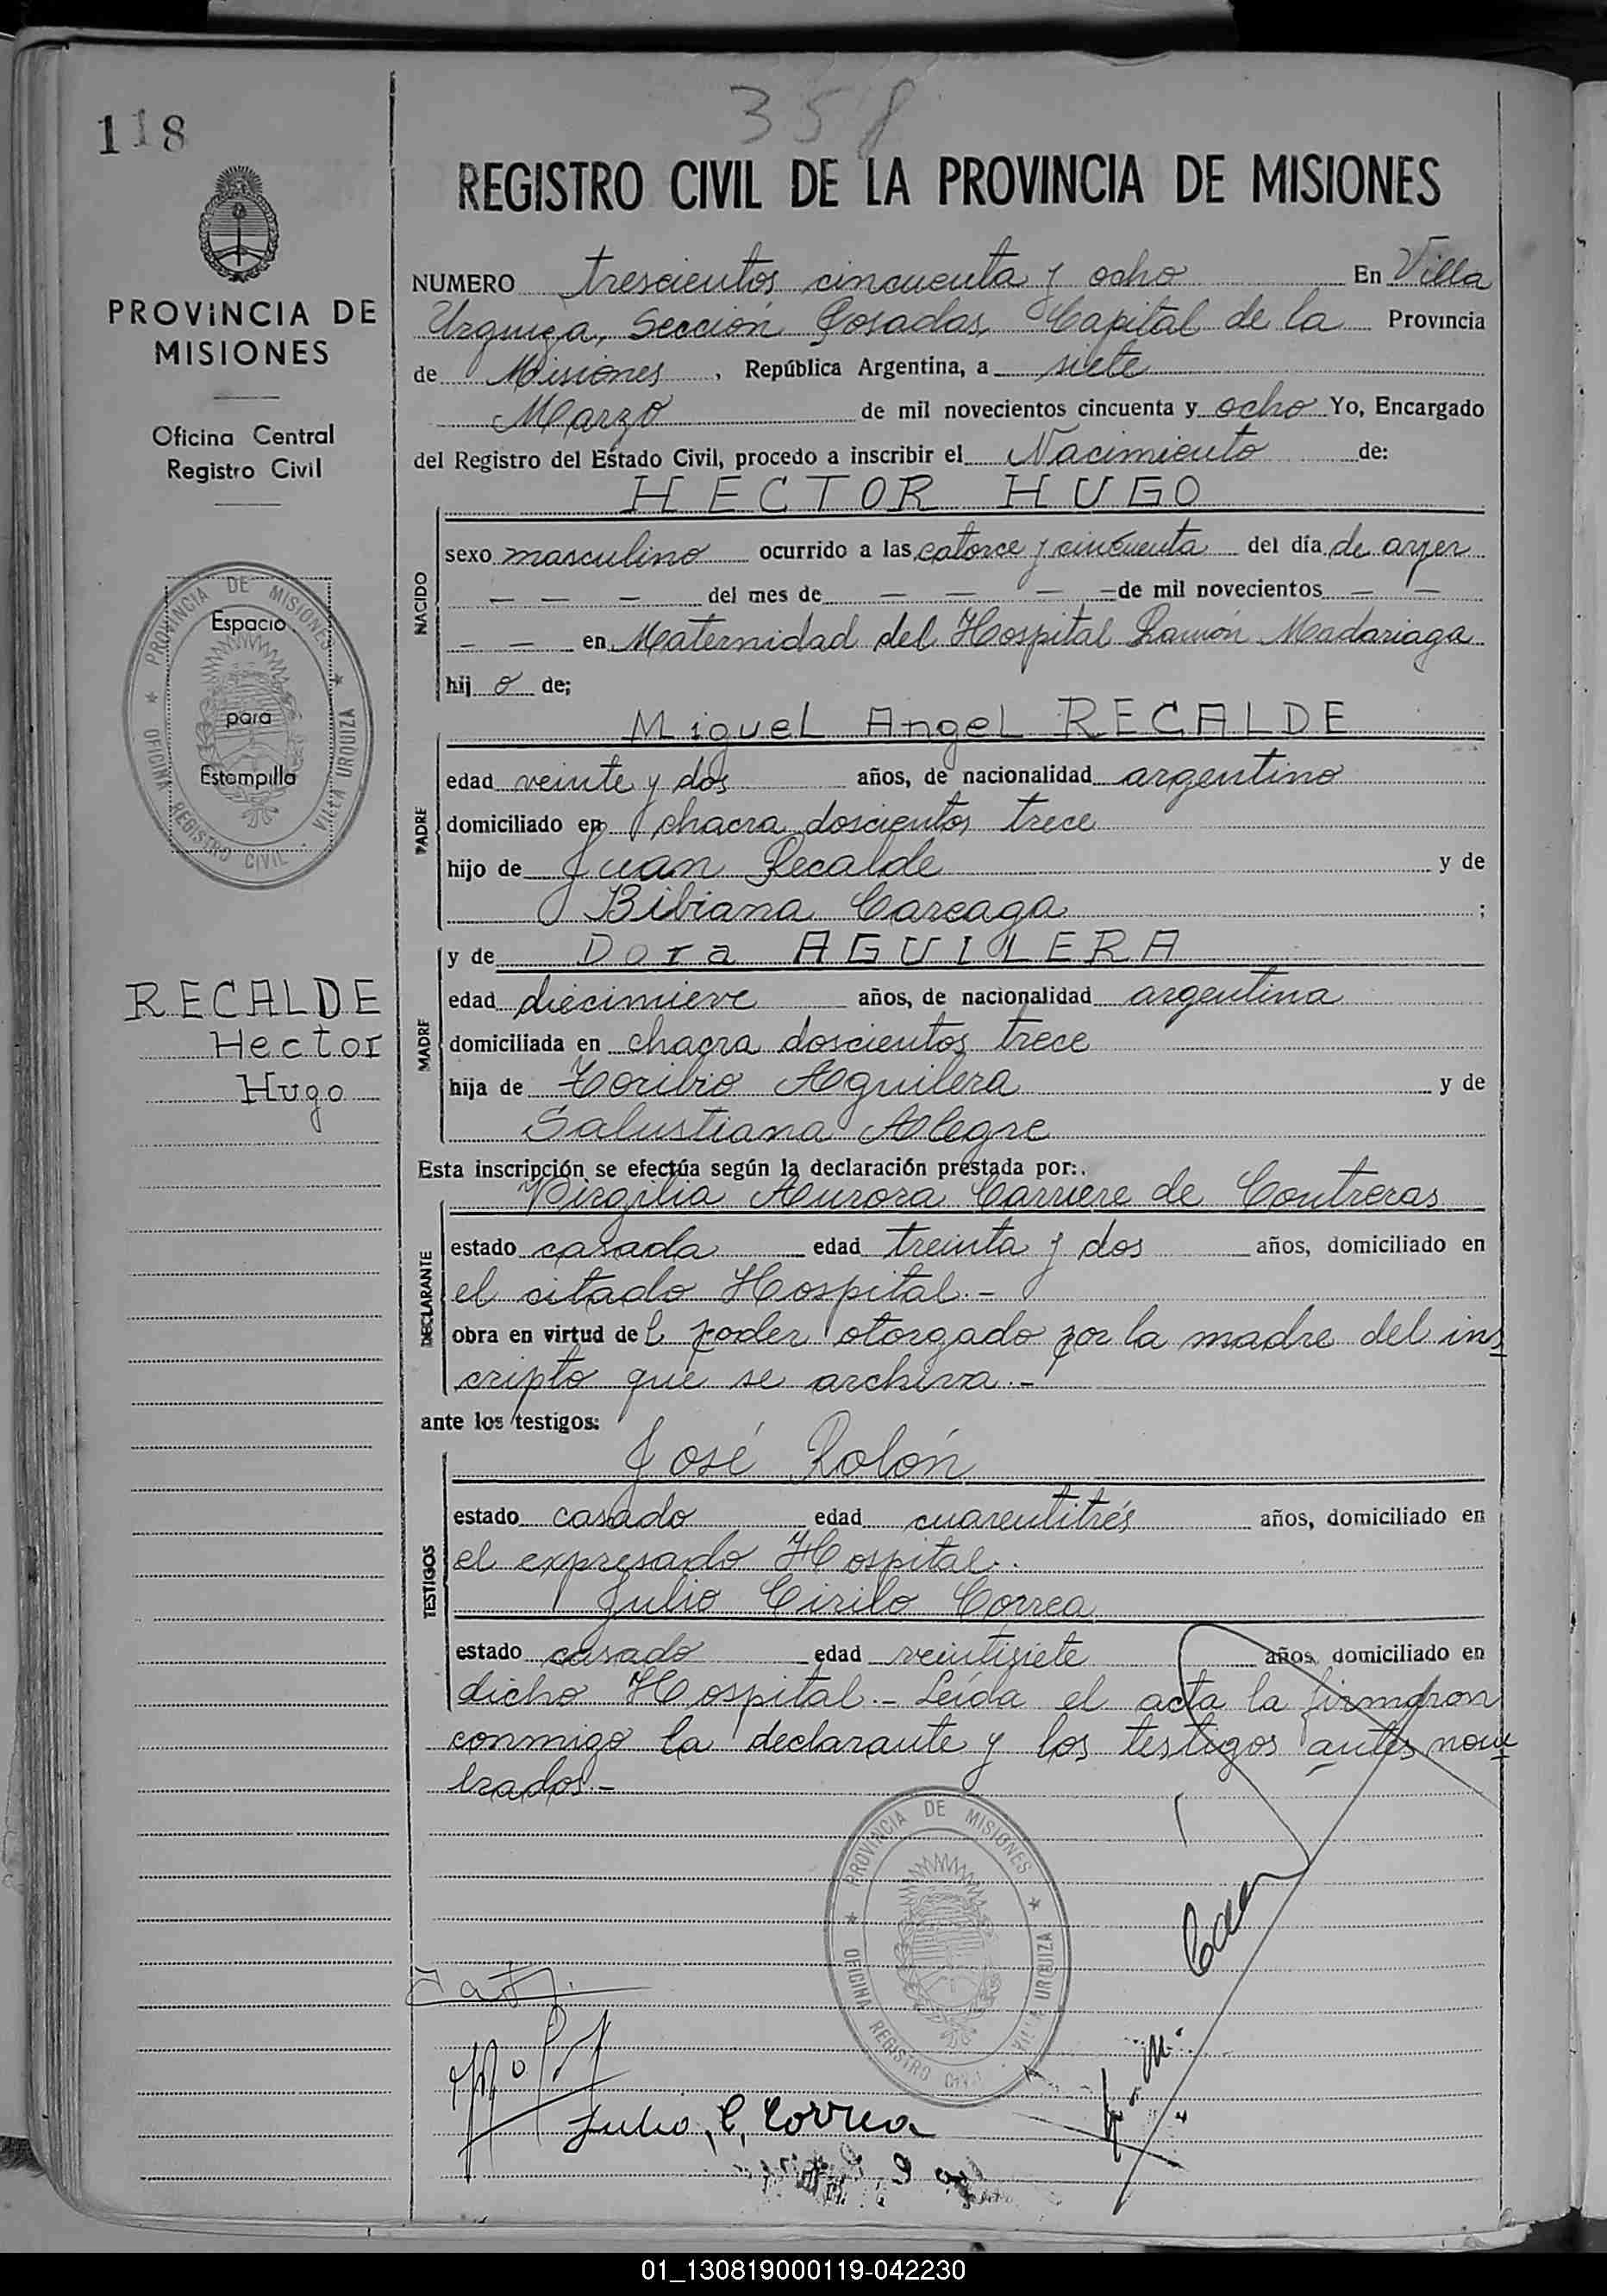 118
358
PROVINCIA DE
MISIONES
Oficina Central
Registro Civil
PROVINCIA DE MISIONES
OFICINA REGISTRO CIVIL · VILLA URQUIZA
Espacio
para
Estampilla
RECALDE
Hector
Hugo
REGISTRO CIVIL DE LA PROVINCIA DE MISIONES
NUMERO trescientos cincuenta y ocho En Villa
Urquiza, Sección Posadas, Capital de la Provincia
de Misiones, República Argentina, a siete
Marzo de mil novecientos cincuenta y ocho Yo, Encargado
del Registro del Estado Civil, procedo a inscribir el Nacimiento de:
HECTOR HUGO
NACIDO
sexo masculino ocurrido a las catorce y cincuenta del día de ayer
— — — del mes de — — — — de mil novecientos — —
— — en Maternidad del Hospital Ramón Madariaga
hij o de;
PADRE
Miguel Angel RECALDE
edad veinte y dos años, de nacionalidad argentino
domiciliado en chacra doscientos trece
hijo de Juan Recalde y de
Bibiana Careaga ;
MADRE
y de Dora AGUILERA
edad diecinueve años, de nacionalidad argentina
domiciliada en chacra doscientos trece
hija de Toribio Aguilera y de
Salustiana Alegre
Esta inscripción se efectúa según la declaración prestada por:
DECLARANTE
Virgilia Aurora Carriere de Contreras
estado casada edad treinta y dos años, domiciliado en
el citado Hospital.-
obra en virtud del poder otorgado por la madre del ins
cripto que se archiva.-
ante los testigos:
TESTIGOS
José Rolón
estado casado edad cuarentitrés años, domiciliado en
el expresado Hospital.
Julio Cirilo Correa
estado casado edad veintisiete años, domiciliado en
dicho Hospital.- Leída el acta la firmaron
conmigo la declarante y los testigos antes nom
brados.-
PROVINCIA DE MISIONES
OFICINA REGISTRO CIVIL · VILLA URQUIZA
Julio C. Correa
01_130819000119-042230